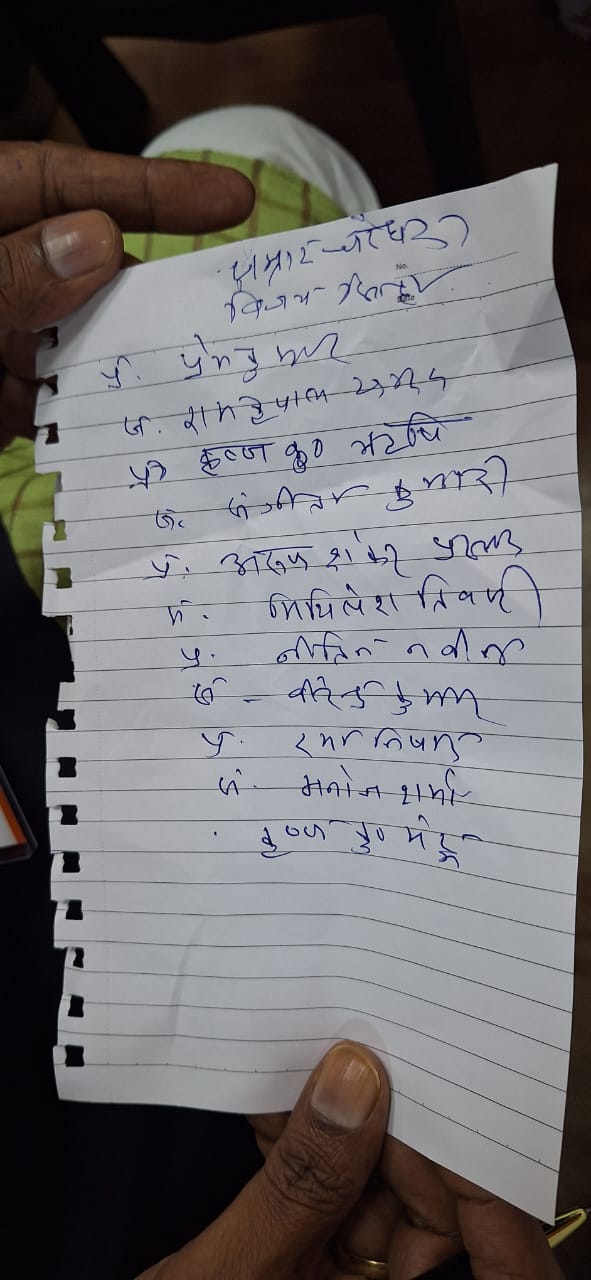 सम्राट चौधरी
No.
विजय सिन्हा
प्र. प्रेम कुमार
ज. रामकृपाल यादव
प्र कृष्ण कु०
ज. संगीता कुमारी
प्र. अरुण शंकर प्रसाद
ज. मिथिलेश तिवारी
प्र. नीतिन नवीन
ज - वीरेन्द्र कुमार
प्र. रमा निषाद
ज. मनोज शर्मा
कृष्ण कु० मंटू